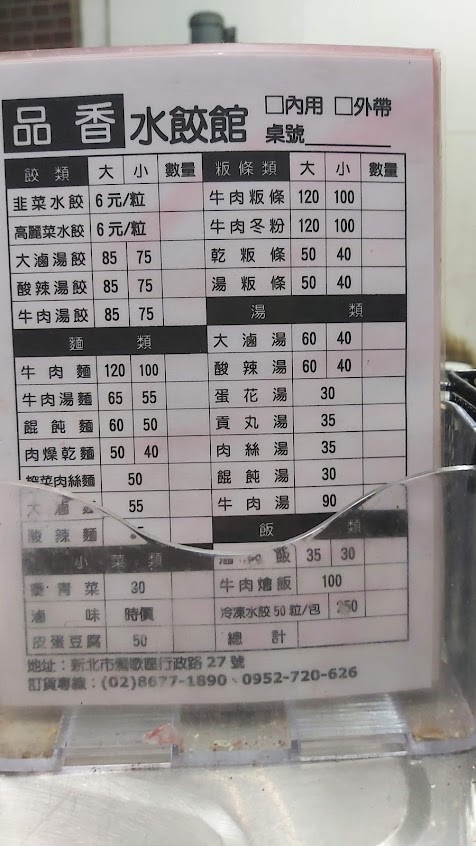 品香水餃館 □內用 □外帶
桌號
餃類 大 小 數量
韭菜水餃 6元/粒
高麗菜水餃 6元/粒
大滷湯餃 85 75
酸辣湯餃 85 75
牛肉湯餃 85 75
麵類
牛肉麵 120 100
牛肉湯麵 65 55
餛飩麵 60 50
肉燥乾麵 50 40
榨菜肉絲麵 50
大滷麵 55
酸辣麵
小菜類
燙青菜 30
滷味 時價
皮蛋豆腐 50
粄條類 大 小 數量
牛肉粄條 120 100
牛肉冬粉 120 100
乾粄條 50 40
湯粄條 50 40
湯類
大滷湯 60 40
酸辣湯 60 40
蛋花湯 30
貢丸湯 35
肉絲湯 35
餛飩湯 30
牛肉湯 90
飯類
滷肉飯 35 30
牛肉燴飯 100
冷凍水餃50粒/包 250
總計
地址：新北市鶯歌區行政路27號
訂貨專線：(02)8677-1890、0952-720-626